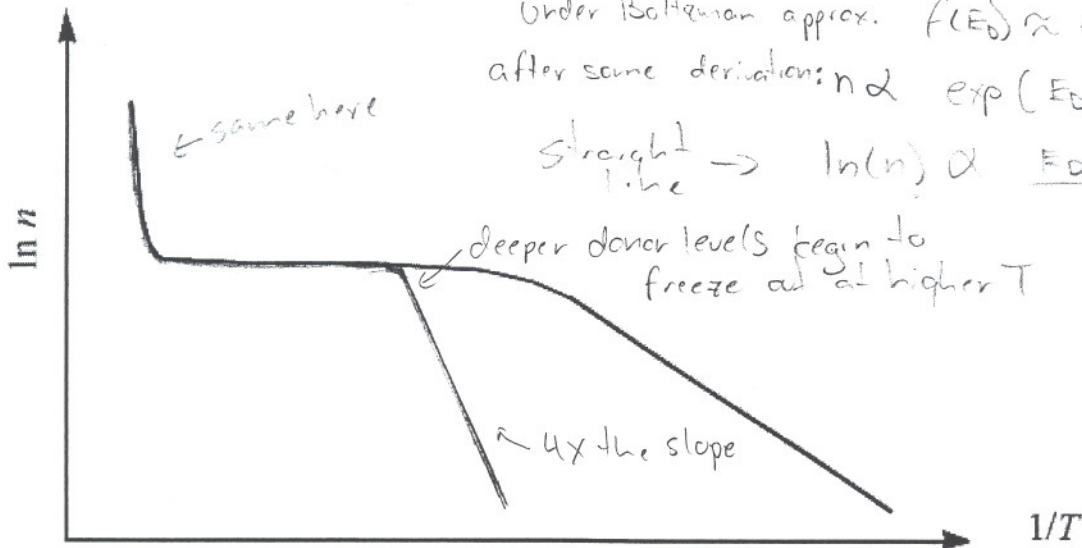 Under Boltzman approx. f(E_D) ≈
after some derivation: n α exp(E_D
← same here
straight line → ln(n) α E_D
deeper donor levels begin to
freeze out at higher T
4x the slope
ln n
1/T